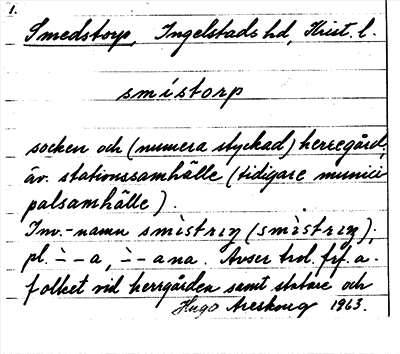 1.
Smedstorp, Ingelstads hd, Krist. l.
smístorp
socken och (numera styckad) herregård,
äv. stationssamhälle (tidigare munici
palsamhälle).
Inv.-namn smìstrıŋ (smìstrıŋ);
pl. ̀ - - a, ̀ - - ana. Avser trol. frf. a.
folket vid herrgården samt statare och
Hugo Areskoug 1963.